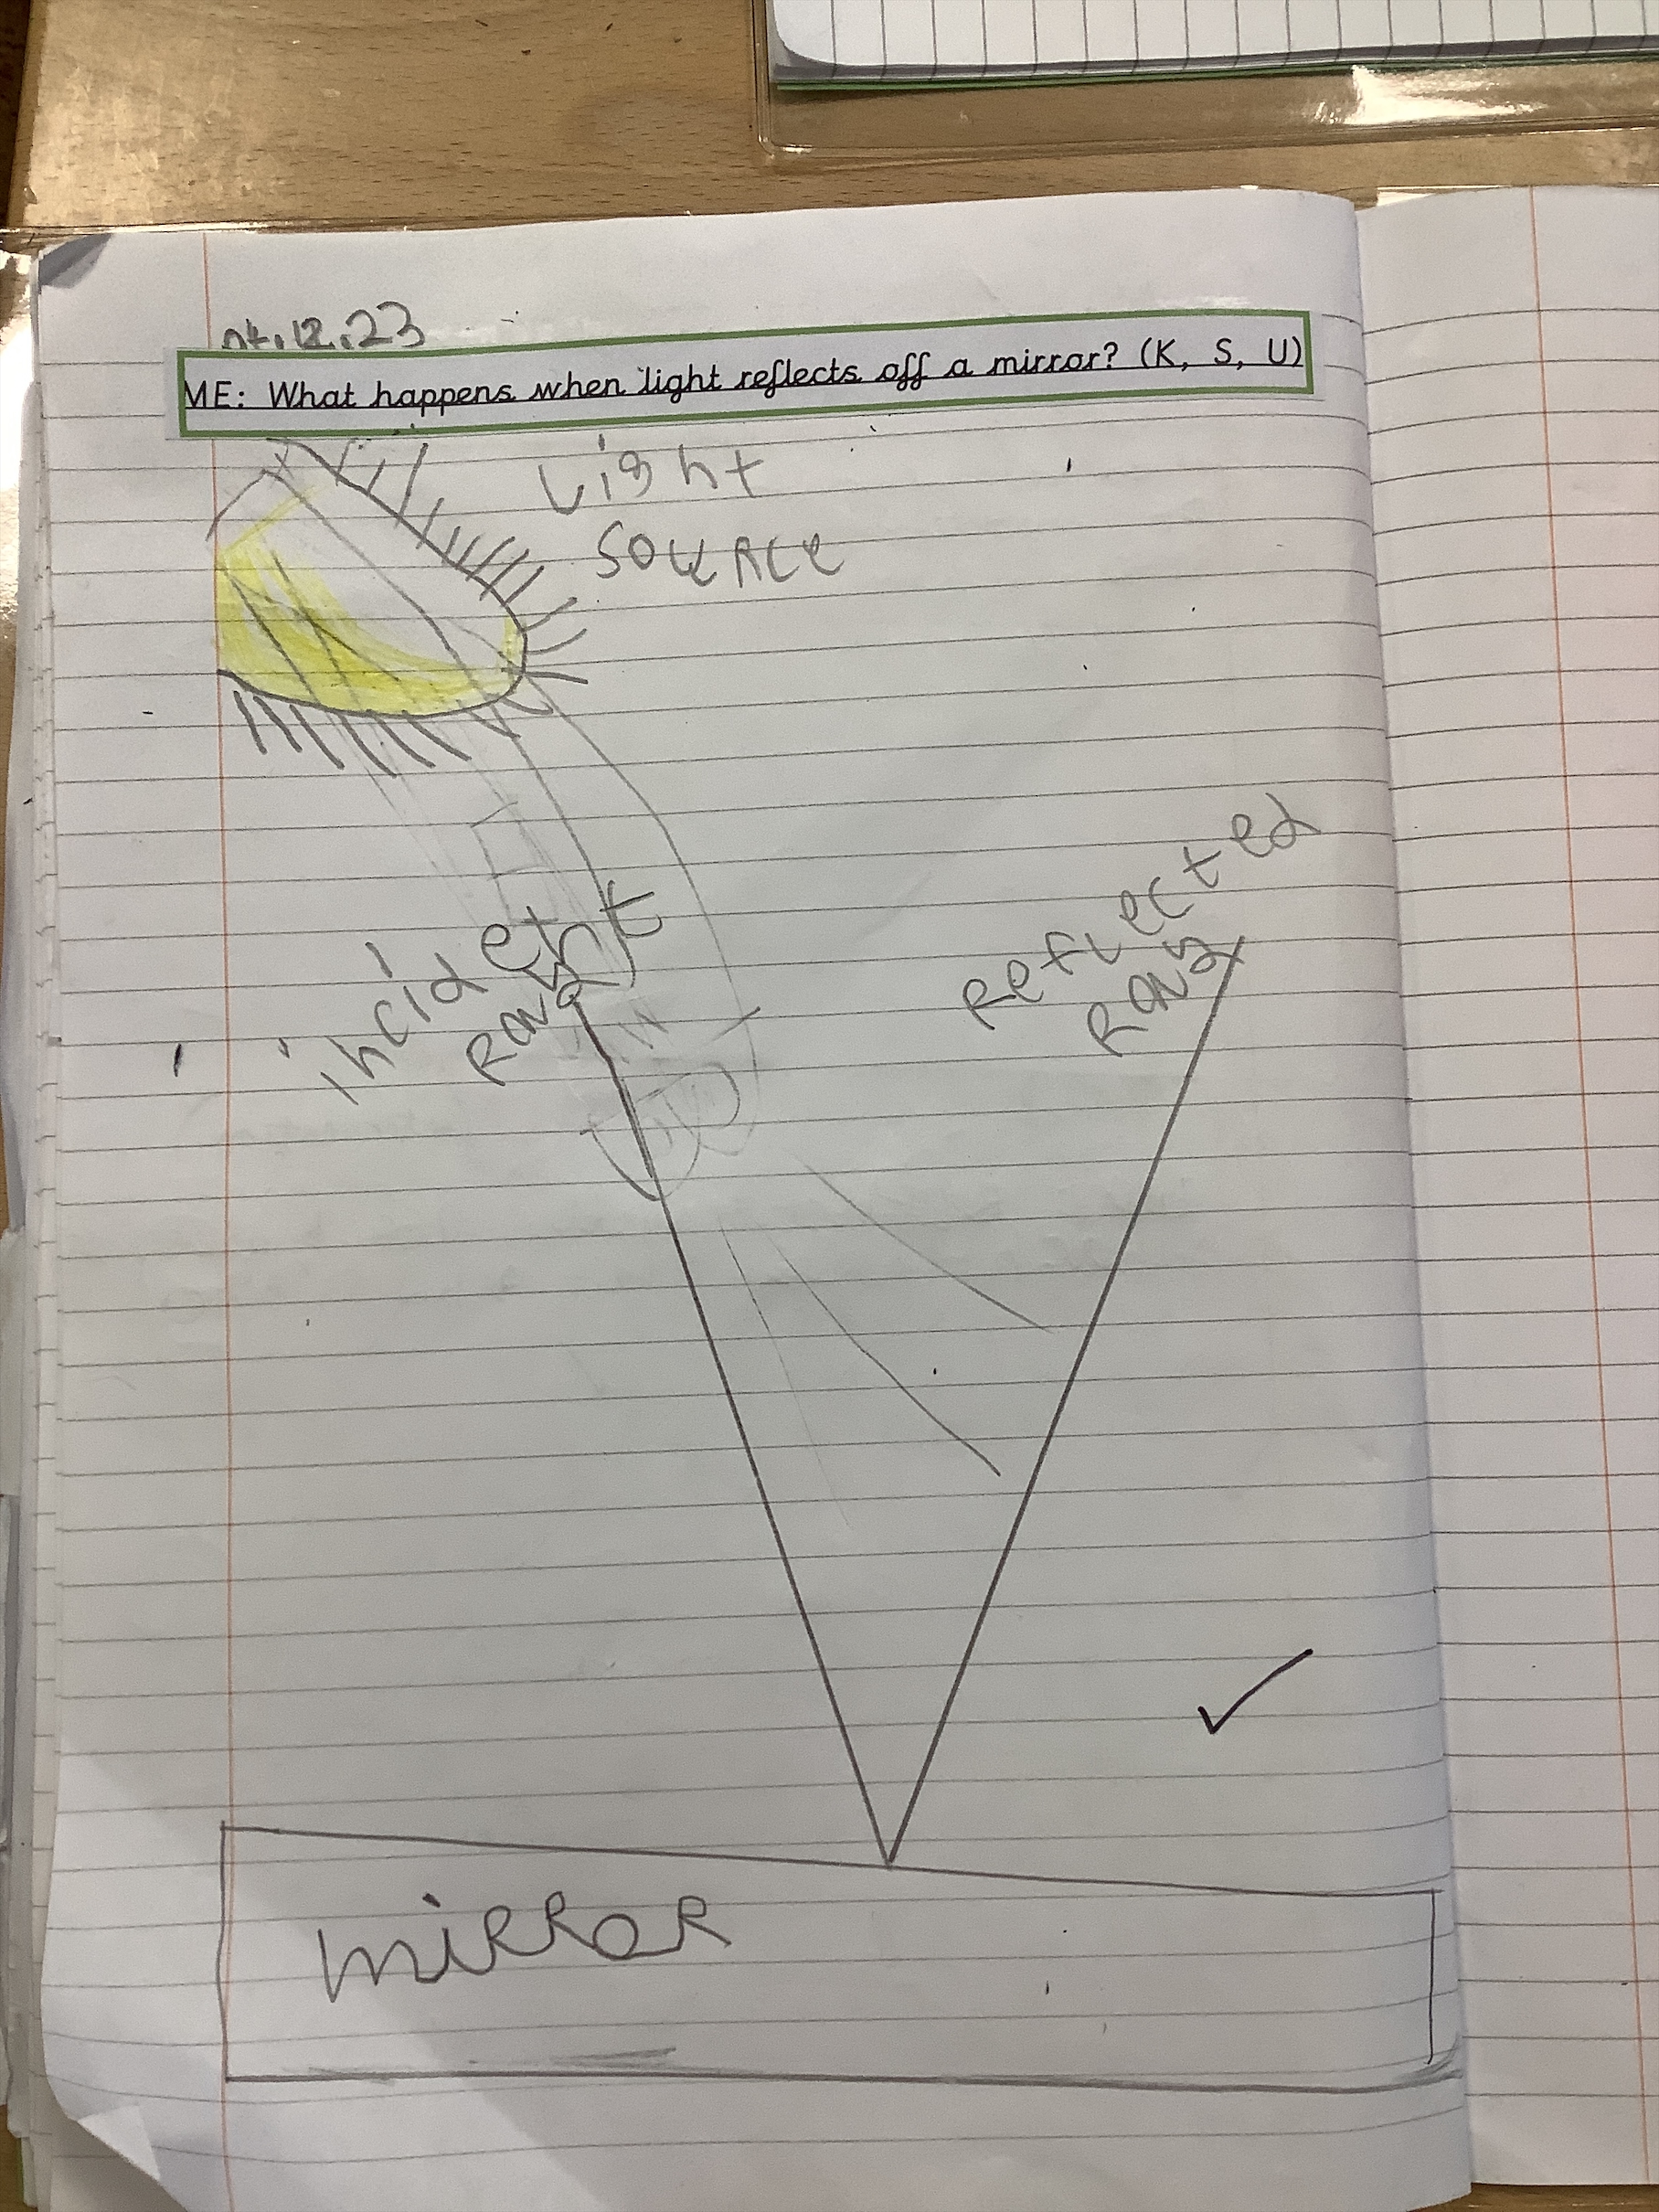 04.12.23
ME: What happens when light reflects off a mirror? (K, S, U)
Light
source
incident
Ray
Reflected
Ray
mirror